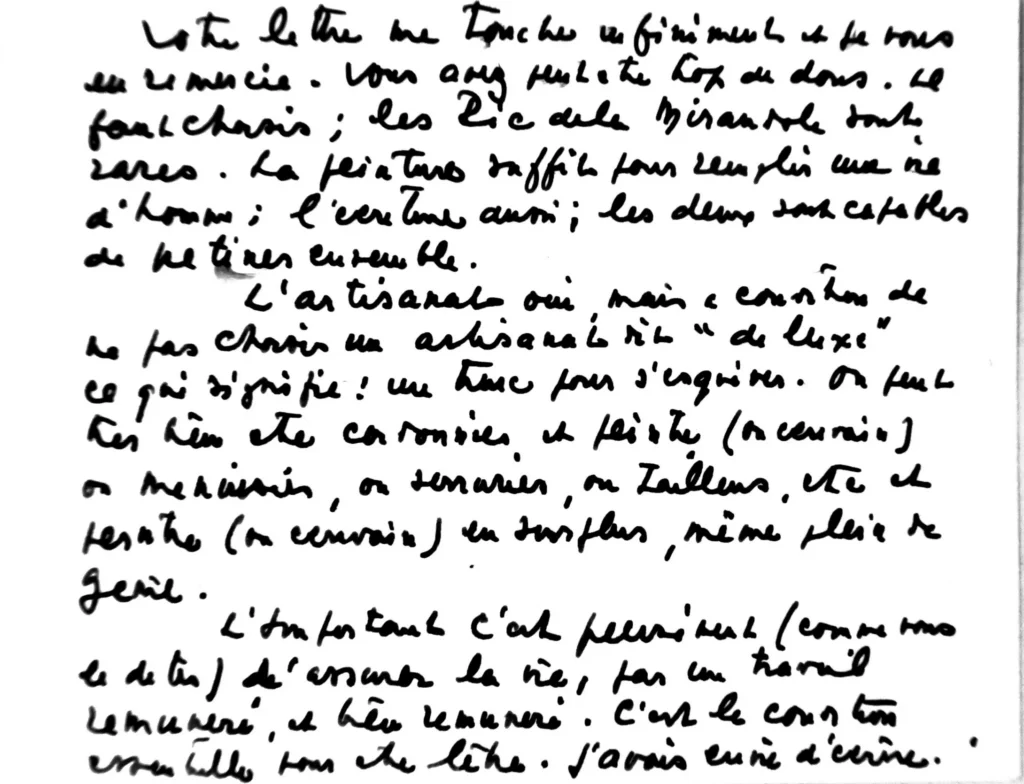 Votre lettre me touche infiniment et je vous
en remercie. Vous avez peut etre trop de dons. Il
faut choisir ; les Pic de la Mirandole sont
rares. La peinture suffit pour remplir une vie
d'homme ; l'ecriture aussi ; les deux sont capables
de ensemble.
L'artisanat oui, mais a condition de
ne pas choisir un artisanat dit "de luxe"
ce qui signifie : un truc pour s'esquiver. On peut
tres bien etre cordonnier, et peintre (ou ecrivain)
ou menuisier, ou serrurier, ou tailleur, etc et
peintre (ou ecrivain) en surplus, même plein de
genie.
L'important c'est precisement (comme vous
le dites) d'assurer la vie, par un travail
remuneré, et bien remuneré. C'est la condition
essentielle pour etre libre. J'avais envie d'ecrire.